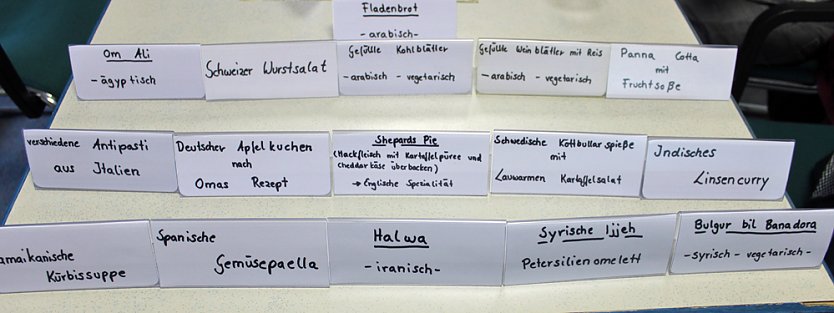 Fladenbrot
-arabisch-
Om Ali
-ägyptisch
Schweizer Wurstsalat
Gefüllte Kohlblätter
-arabisch - vegetarisch
Gefüllte Weinblätter mit Reis
-arabisch - vegetarisch
Panna Cotta
mit
Fruchtsoße
verschiedene Antipasti
aus Italien
Deutscher Apfelkuchen
nach
Omas Rezept
Shepards Pie
(Hackfleisch mit Kartoffelpüree und
Cheddar käse überbacken)
→ Englische Spezialität
Schwedische Köttbullar spieße
mit
Lauwarmen Kartoffelsalat
Indisches
Linsencurry
amaikanische
Kürbissuppe
Spanische
Gemüsepaella
Halwa
-iranisch-
Syrische Ijjeh
Petersilienomelett
Bulgur bil Banadora
-syrisch - vegetarisch-